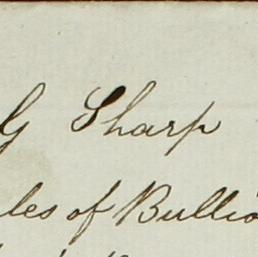 G Sharp
les of Bullio